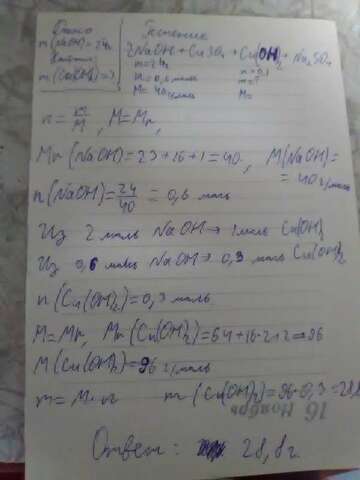 Дано
m(NaOH)=24г.
m(Cu(OH)₂)=?
Решение
2NaOH+CuSO₄→Cu(OH)₂+Na₂SO₄
m=24г
n=0,6 моль
M=40г/моль
m=?
M=
n=m/M, M=Mr,
Mr(NaOH)=23+16+1=40, M(NaOH)=
=40г/моль
n(NaOH)=24/40=0,6 моль
Из 2 моль NaOH→1моль Cu(OH)₂
Из 0,6 моль NaOH→0,3 моль Cu(OH)₂
n(Cu(OH)₂)=0,3 моль
M=Mr, Mr(Cu(OH)₂)=64+16·2+2=96
M(Cu(OH)₂)=96 г/моль
m=M·n m(Cu(OH)₂)=96·0,3=28,8
16 Ноябрь
Ответ: 28,8г.